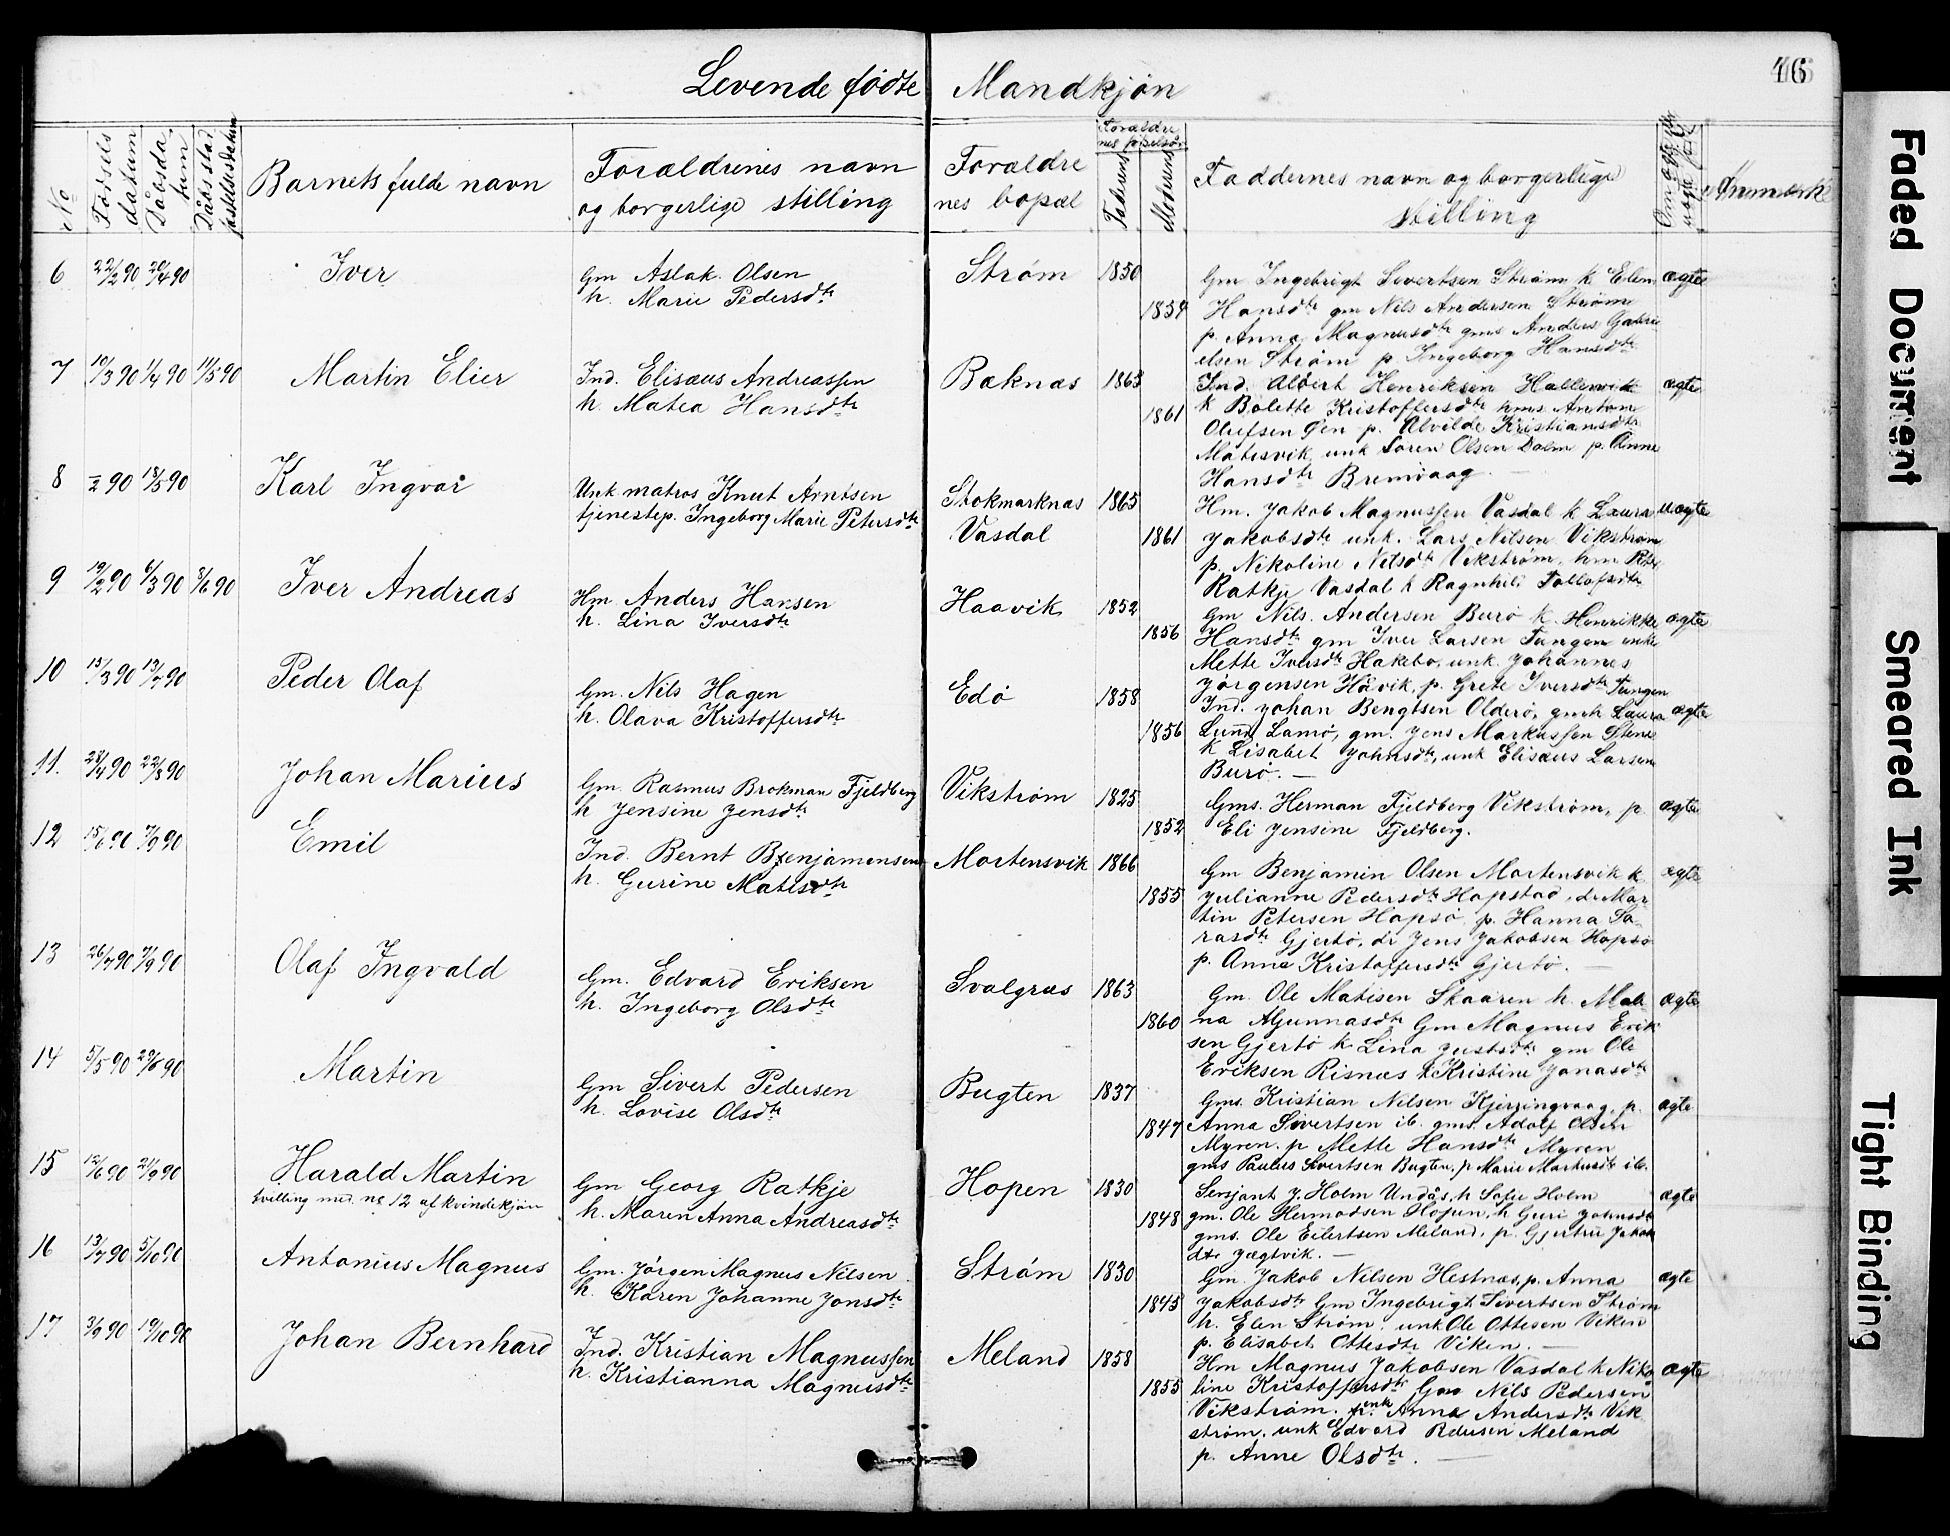 Levende fødte Mandkjøn
46
No
Fødsels datum
Dåbsdatum
Dåbs stad
Barnets fulde navn
Forældrenes navn og borgerlige stilling
Forældrenes bopæl
Forældrenes fødselsår
Faderens
Moderens
Faddernes navn og borgerlige stilling
Anmærk
6 22/2 90 20/4 90 Iver
Gm Aslak Olsen
h. Marie Pedersdtr
Strøm 1850
1854
Gm Ingebrigt Sivertsen Strøm k Elen
Hansdtr gm Nils Andersen Strøm
p. Anna Magnusdtr gms Anders Gabri
elsen Strøm p Ingeborg Hansdtr
ægte
7 10/3 90 1/4 90 11/5 90 Martin Elier
Ind. Elisæus Andreassen
h. Matea Hansdtr
Bæknæs 1863
1861
Ind. Albert Henriksen Hallervik
k Bolette Kristoffersdtr hms Anton
Olufsen Øen p. Alvilde Kristiansdtr
Matisvik unk Søren Olsen Dolm p. Anne
Hansdtr Bremvaag.
ægte
8 –/2 90 18/5 90 Karl Ingvar
Unk matros Knut Arntsen
tjenestep. Ingeborg Marie Petersdtr
Stokmarknæs 1865
Vasdal 1861
Hm. Jakob Magnussen Vasdal k Laura
Jakobsdtr unk. Lars Nilsen Vikstrøm
p. Nikoline Nilsdtr Vikstrøm, hm
Ratkje Vasdal h Ragnhild Tollofsdtr
uægte
9 19/2 90 4/3 90 8/6 90 Iver Andreas
Hm Anders Hansen
h. Lina Iversdtr
Haavik 1852
1856
Gm Nils Andersen Burø k. Henrikke
Hansdtr gm Iver Larsen Tangen enke
Mette Iversdtr Hakebo, unk Johannes
Jørgensen Håvik, p. Grete Iversdtr Tangen
ægte
10 15/3 90 13/7 90 Peder Olaf
Gm. Nils Hagen
h. Olava Kristoffersdtr
Edø 1858
1856
Ind. Johan Bengtsen Olderø, gmh Laura
Lund Lamø, gm. Jens Markussen Stene
k Lisabet Johnsdtr, unk Elisæus Larsen
Burø. –
ægte
11. 28/4 90 22/8 90 Johan Marius
Gm. Rasmus Brokman Fjeldberg
h Jensine Jensdtr
Vikstrøm 1825
1852
Gms. Herman Fjeldberg Vikstrøm, p.
Eli Jensine Fjeldberg.
ægte
12 15/6 90 7/9 90 Emil
Ind. Bernt Benjamensen
h. Gurine Matisdtr
Mortensvik 1866
1855
Gm Benjamin Olsen Mortensvik k
Julianne Pedersdtr Hopstad, dr Mar-
tin Petersen Hopsø, p. Hanna La-
rasdtr Gjertø, dr Jens Jakobsen Hopsø
p. Anna Kristoffersdtr Gjertø. –
ægte
13 26/7 90 7/9 90 Olaf Ingvald
Gm. Edvard Eriksen
h. Ingeborg Olsdtr
Svalgræs 1863
1860
Gm. Ole Matisen Skaaren h. Mab
na Gm Magnus Erik
sen Gjertø k. Lina gm Ole
Eriksen Risnæs k Kristine Jonasdtr
ægte
14 5/5 90 29/6 90 Martin
Gm Sivert Pedersen
h. Lovise Olsdtr
Bugten 1837
1847
Gms. Kristian Nilsen Kjerringvaag, p.
Anna Sivertsen ib. gms. Adolf Olsen
Myren. p Mette Hansdtr Myren
gms Paulus Sivertsen Bugten, p Marie Markusdtr ib.
ægte
15 12/6 90 21/9 90 Harald Martin
tvilling med no 12 af kvindekjøn
Gm Georg Ratkje
h. Maren Anna Andreasdtr
Hopen 1830
1848
Sersjant J. Holm Undås, h Sofie Holm
gm. Ole Hermodsen Hopen, h Guri Johnsdtr
gms. Ole Eilertsen Meland, p. Gjertru Jakob
dtr Jægtvik. –
ægte
16 13/7 90 5/10 90 Antonius Magnus
Gm. Jørgen Magnus Nilsen
h. Karen Johanne Jonsdtr
Strøm 1830
1845
Gm. Jakob Nilsen Hestnæs, p. Anna
Jakobsdtr Gm Ingebrigt Sivertsen Strøm
h. Elen Strøm, unk Ole Ottesen Viken
p. Elisabet Ottesdtr Viken. –
ægte
17 3/9 90 19/10 90 Johan Bernhard
Ind. Kristian Magnussen
h. Kristianna Magnusdtr
Meland 1858
1855
Hm Magnus Jakobsen Vasdal k Niko
line Kristoffersdtr Gm Nils Pedersen
Vikstrøm. enk Anna Andersdtr Vik
strøm. unk Edvard Pedersen Meland
p. Anne Olsdtr. –
ægte
Faded Document
Smeared Ink
Tight Binding